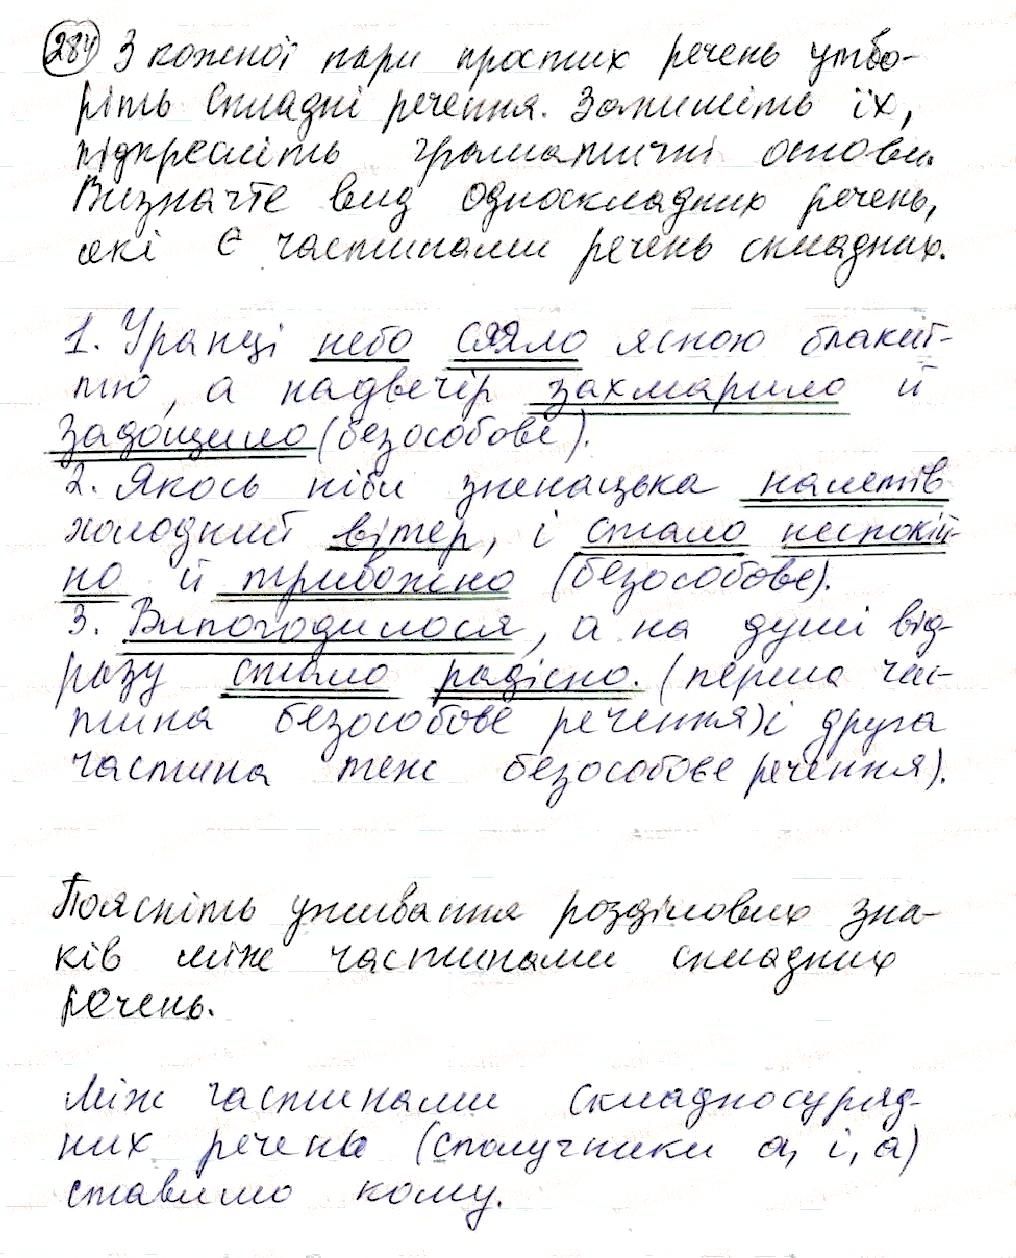 284 З кожної пари простих речень утво-
ріть складні речення. Запишіть їх,
підкресліть граматичні основи.
Визначте вид односкладних речень,
які є частинами речень складних.
1. Уранці небо сяяло ясною блакит-
тю, а надвечір захмарило й
задощило (безособове).
2. Якось ніби зненацька налетів
холодний вітер, і стало неспокій-
но й тривожно (безособове).
3. Випогодилося, а на душі від-
разу стало радісно. (перша час-
тина безособове речення) і друга
частина теж безособове речення).
Поясніть уживання розділових зна-
ків між частинами складних
речень.
Між частинами складносуряд-
них речень (сполучники а, і, а)
ставимо кому.